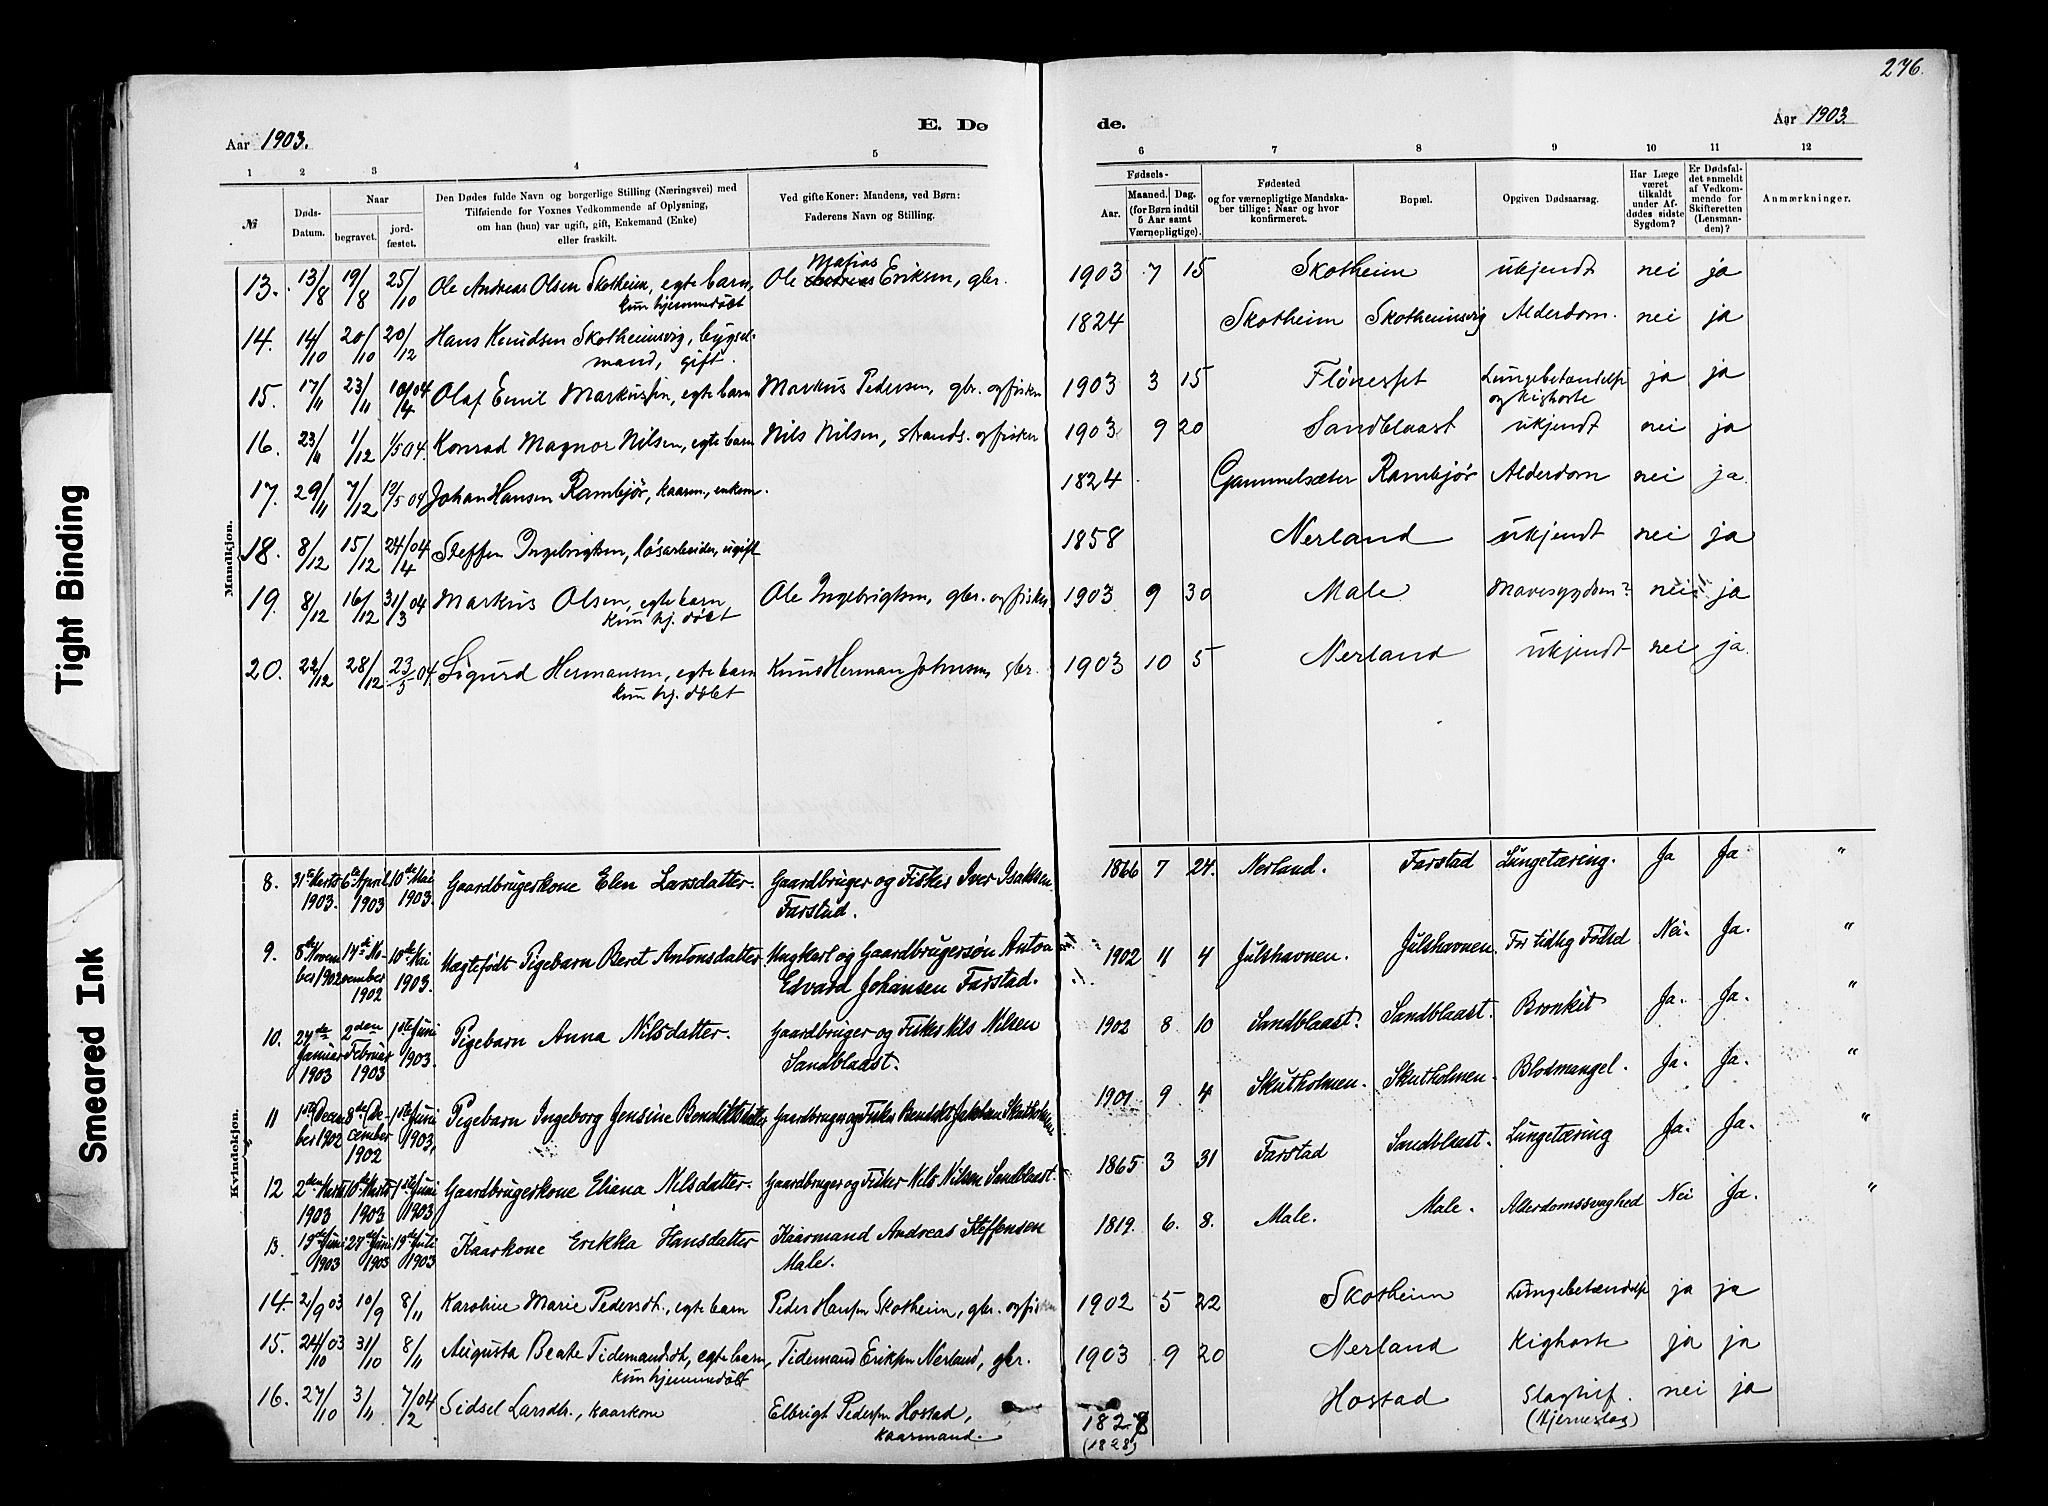 276.
Aar 1903.
E. Dø
de.
Aar 1903.
1 2 3 4 5 6 7 8 9 10 11 12
№
Døds-Datum.
Naar
begravet.
jord-fæstet.
Den Dødes fulde Navn og borgerlige Stilling (Næringsvei) med
Tilføiende for Voxnes Vedkommende af Oplysning,
om han (hun) var ugift, gift, Enkemand (Enke)
eller fraskilt.
Ved gifte Koner: Mandens, ved Børn:
Faderens Navn og Stilling.
Fødsels-
Aar.
Maaned. Dag.
(for Børn indtil
5 Aar samt
Værnepligtige).
Fødested
og for værnepligtige Mandska-
ber tillige: Naar og hvor
konfirmeret.
Bopæl.
Opgiven Dødsaarsag.
Har Læge
været
tilkaldt
under Af-
dødes sidste
Sygdom?
Er Dødsfal-
det anmeldt
af Vedkom-
mende for
Skifteretten
(Lensman-
den)?
Anmærkninger.
Mandkjøn.
13. 13/8 19/8 25/10 Ole Andreas Olsen Skotheim, egte barn, Ole Matias Eriksen, gbr. 1903 7 15 Skotheim ukjendt nei ja
kun hjemmedøbt
14. 14/10 20/10 20/12 Hans Knudsen Skotheimsvig, bygsel- 1824 Skotheim Skotheimsvig Alderdom. nei ja
mand, gift.
15. 17/11 23/11 10/4 04 Olaf Emil Markussen, egte barn Markus Pedersen, gbr. og fisker 1903 3 15 Flønesset Lungebetændelse ja ja
og kighoste
16. 23/11 1/12 1/5 04. Konrad Magnor Nilsen, egte barn Nils Nilsen, strands. og fisker 1903 9 20 Sandblaast ukjendt nei ja
17. 29/11 7/12 12/5 04 Johan Hansen Rambjør, kaarm, enkem. 1824 Gammelsæter Rambjør Alderdom nei ja.
18. 8/12 15/12 24/4 04 Steffen Ingebrigtsen, løsarbeider, ugift 1858 Nerland ukjendt nei ja
19. 8/12 16/12 31/3 04 Markus Olsen, egte barn Ole Ingebrigtsen, gbr. og fisker 1903 9 30 Male Mavesygdom? nei ja
kun hj. døbt
20. 22/12 28/12 23/5 04. Sigurd Hermansen, egte barn Knut Herman Johnsen, gbr. 1903 10 5 Nerland ukjendt nei ja.
kun hj. døbt
Kvindekjøn.
8. 31te Marts 1903. 6te April 1903 10de Mai 1903. Gaardbrugerkone Elen Larsdatter. Gaardbruger og Fisker Iver Isaksen 1866 7 24. Nerland. Farstad Lungetæring. Ja Ja "
Farstad.
9. 8de November 1902 14de November 1902 10de Mai 1903. Uægtefødt Pigebarn Beret Antonsdatter. Ungkarl og Gaardbrugersøn Anton 1902 11 4 Julshavnen. Julshavnen. For tidlig Fødsel Nei. Ja. "
Edvard Johansen Farstad.
10. 27de Januar 1903 2den Februar 1903 1ste Juni 1903. Pigebarn Anna Nilsdatter. Gaardbruger og Fisker Nils Nilsen 1902 8 10 Sandblaast. Sandblaast. Bronkit Ja. Ja. "
Sandblaast.
11 1ste December 1902 8de December 1902 1ste Juni 1903, Pigebarn Ingeborg Jensine Bendiktsdatter Gaardbruger og Fisker Bendikt Jakobsen Skutholmen 1901 9 4 Skutholmen. Skutholmen. Blodmangel. Ja. Ja. "
12 2den Marts 1903 10de Marts 1903 1ste Juni 1903 Gaardbrugerkone Eliana Nilsdatter. Gaardbruger og Fisker Nils Nilsen Sandblaast. 1865 3 31 Farstad Sandblaast. Lungetæring Ja. Ja. "
13. 19de Juni 1903 27de Juni 1903 19de Juli 1903 Kaarkone Erikka Hansdatter Kaarmand Andreas Steffensen 1819. 6. 8. Male. Male. Alderdomssvaghed Nei Ja. "
Male.
14. 2/9 03 10/9 8/11 Karoline Marie Pedersdt., egte barn Peder Hansen Skotheim, gbr. og fisker 1902 5 22 Skotheim Lungebetændelse ja ja
15. 24/10 03 31/10 8/11 Augusta Beate Tidemandsdt, egte barn, Tidemand Eriksen Nerland, gbr. 1903 9 20 Nerland Kighoste ja ja
kun hjemmedøbt
16. 27/10 3/11 7/2 04 Sidsel Larsdtr., kaarkone Elbrigt Pedersen Hostad, 1828 Hostad Slagtilf. nei ja
kaarmand. (1828) (Hjerneslag)
Tight Binding
Smeared Ink